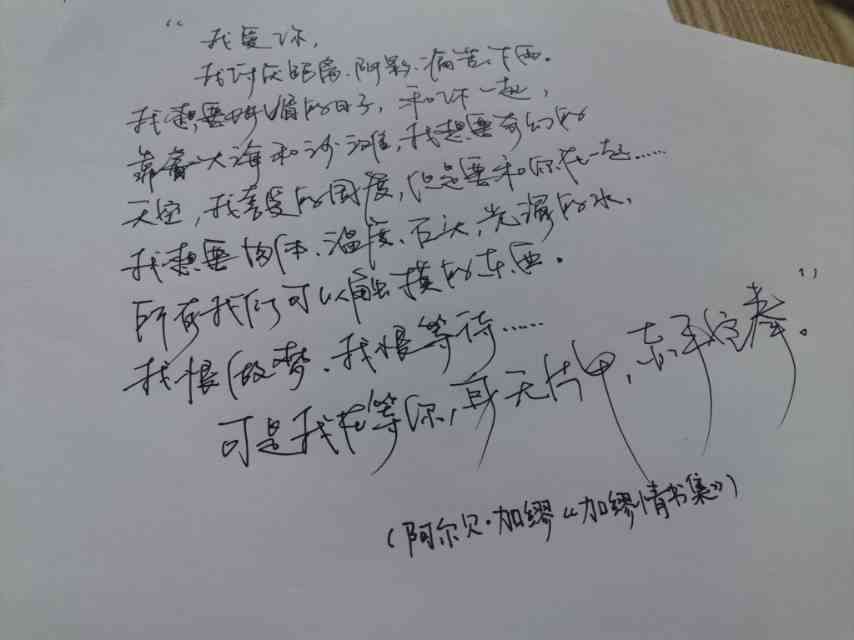 “我爱你,
我讨厌距离、阴影、痛苦、下雨。
我想要明媚的日子,和你一起,
靠着大海和沙滩,我想要奇幻的
天空,我喜爱的国度,但是要和你在一起……
我想要肉体、温度、石头,光溜的水,
所有我们可以触摸的东西。
我恨做梦、我恨等待……
可是我在等你,身无片甲,束手空拳。”
(阿尔贝·加缪《加缪情书集》)